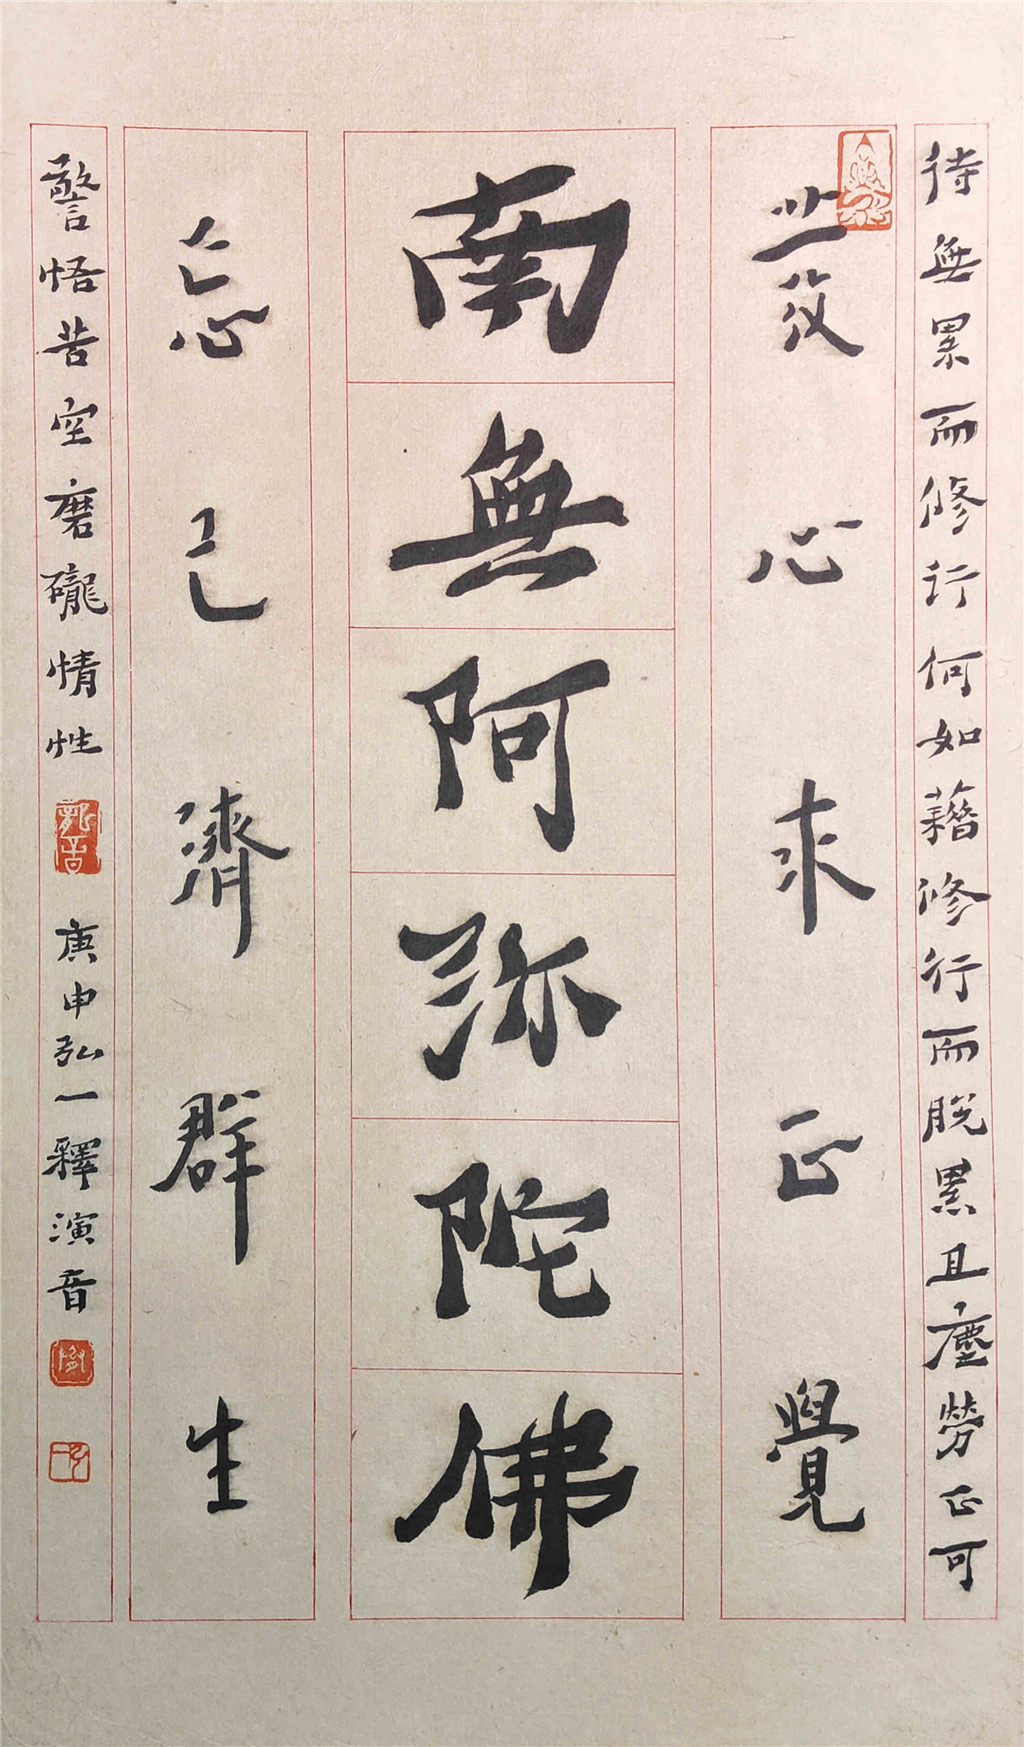 待無累而修行何如藉修行而脫累且塵勞正可
發心求正覺
南無阿弥陀佛
忘己濟群生
警悟苦空磨礲情性
庚申弘一釋演音